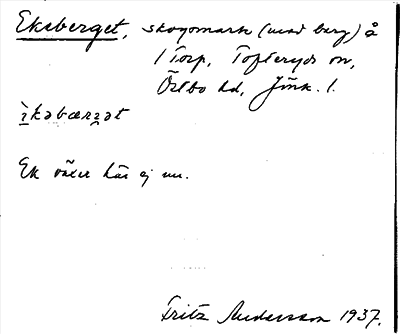 Ekeberget, skogsmark (med berg) å
1 Torp, Tofteryds sn,
Östbo hd, Jönk. l.
ìkəbærət
Ek växer här ej nu.
Fritz Andersson 1937.